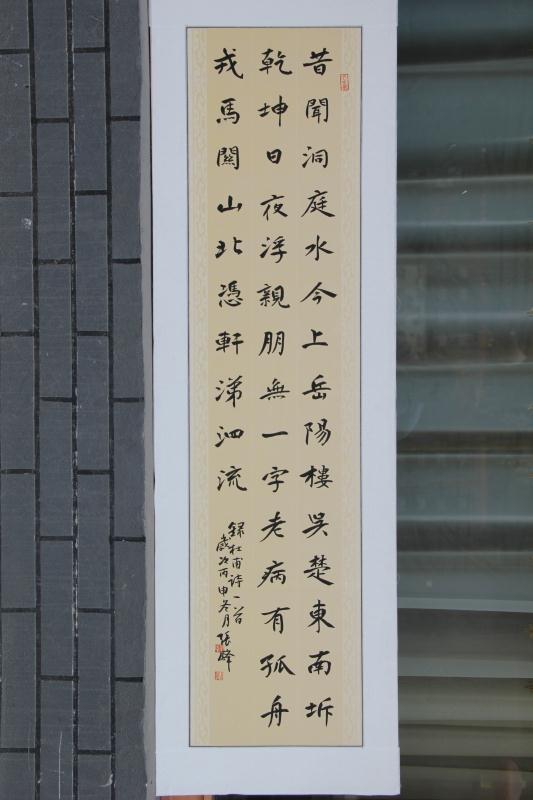 昔聞洞庭水今上岳陽樓吳楚東南坼
乾坤日夜浮親朋無一字老病有孤舟
戎馬關山北憑軒涕泗流
錄杜甫詩一首
歲次丙申冬月張峰